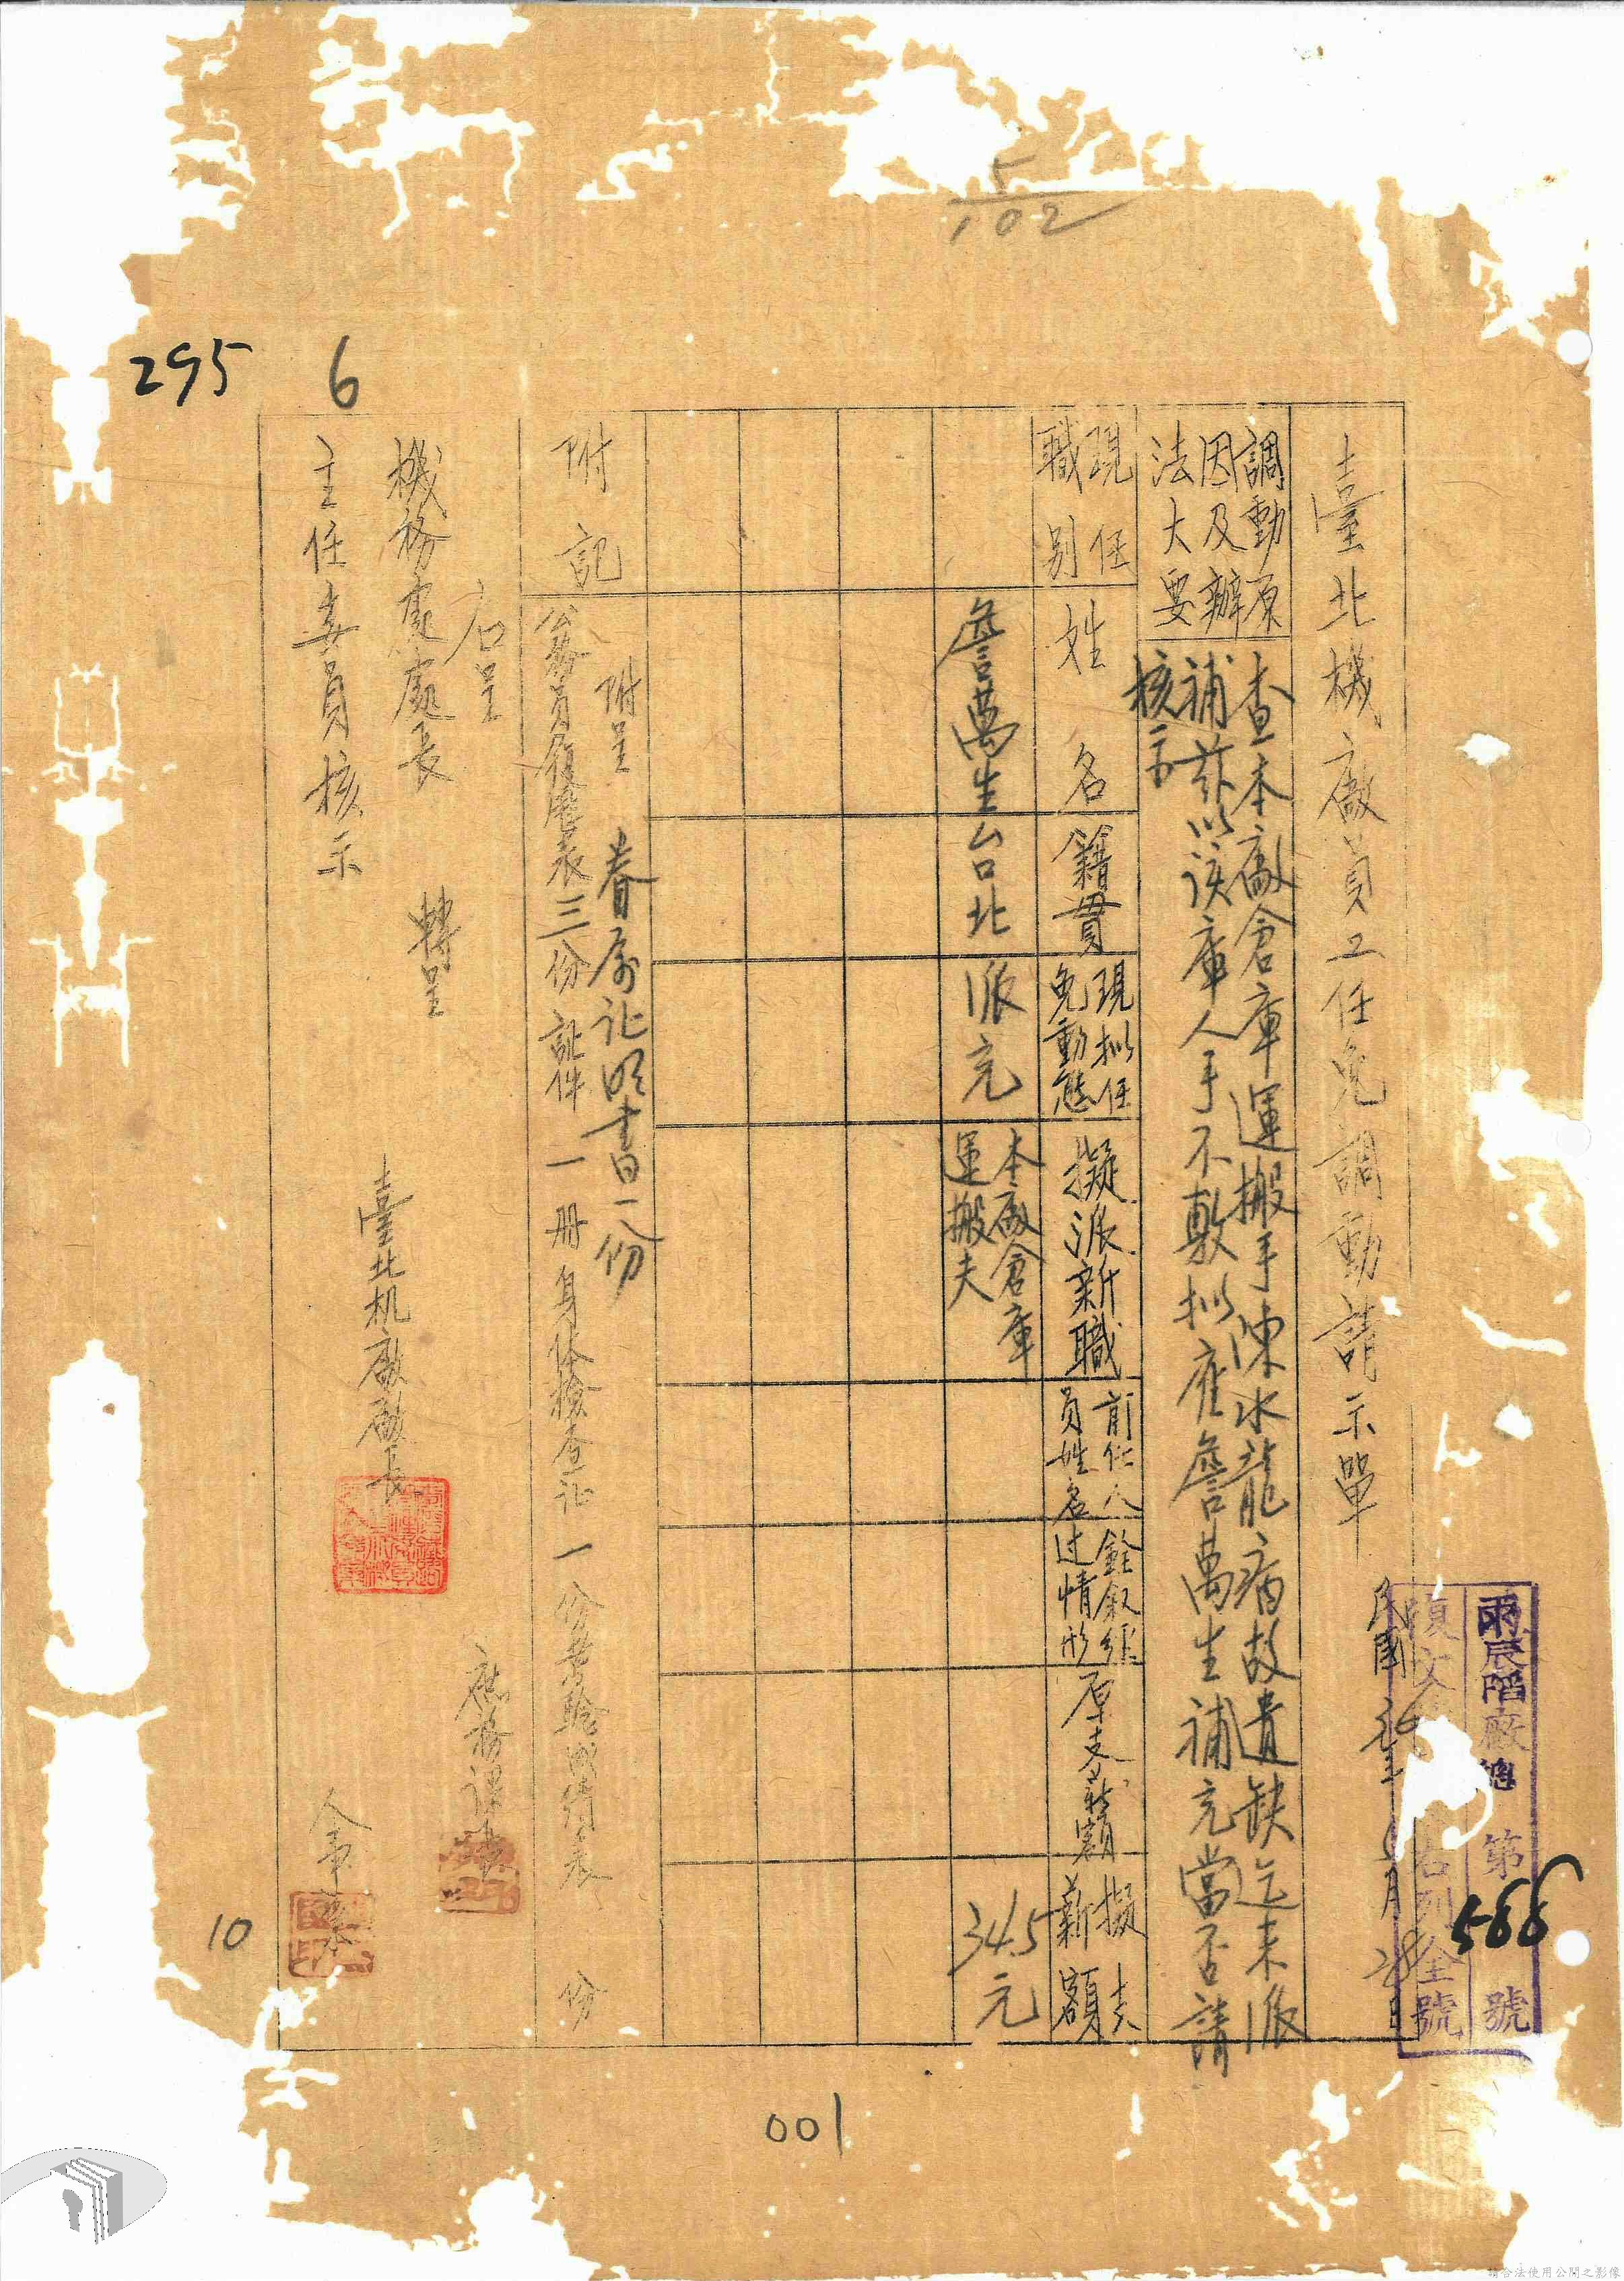 5
102
295
6
臺北機廠員工任免調動請示單
民國
月28日
第566號
調動原
因及辦
法大要
查本廠倉庫運搬手陳水龍病故遺缺迄未派
補茲以該庫人手不敷拟雇詹萬生補充當否請
核示
現任
職別
姓名
籍貫
現拟任
免動態
擬派新職
前任人
員姓名
銓叙經
过情形
原支薪額
擬支
薪額
詹萬生
台北
派充
本廠倉庫
運搬夫
34.5元
附記
附呈 眷属证明書一份
公務員履歷表三份 証件一册 身体檢查证一份 考驗成績表 份
右呈
機務處處長 轉呈
主任委員核示
臺北机廠廠長
庶務課長
10
001
請合法使用公開之影像